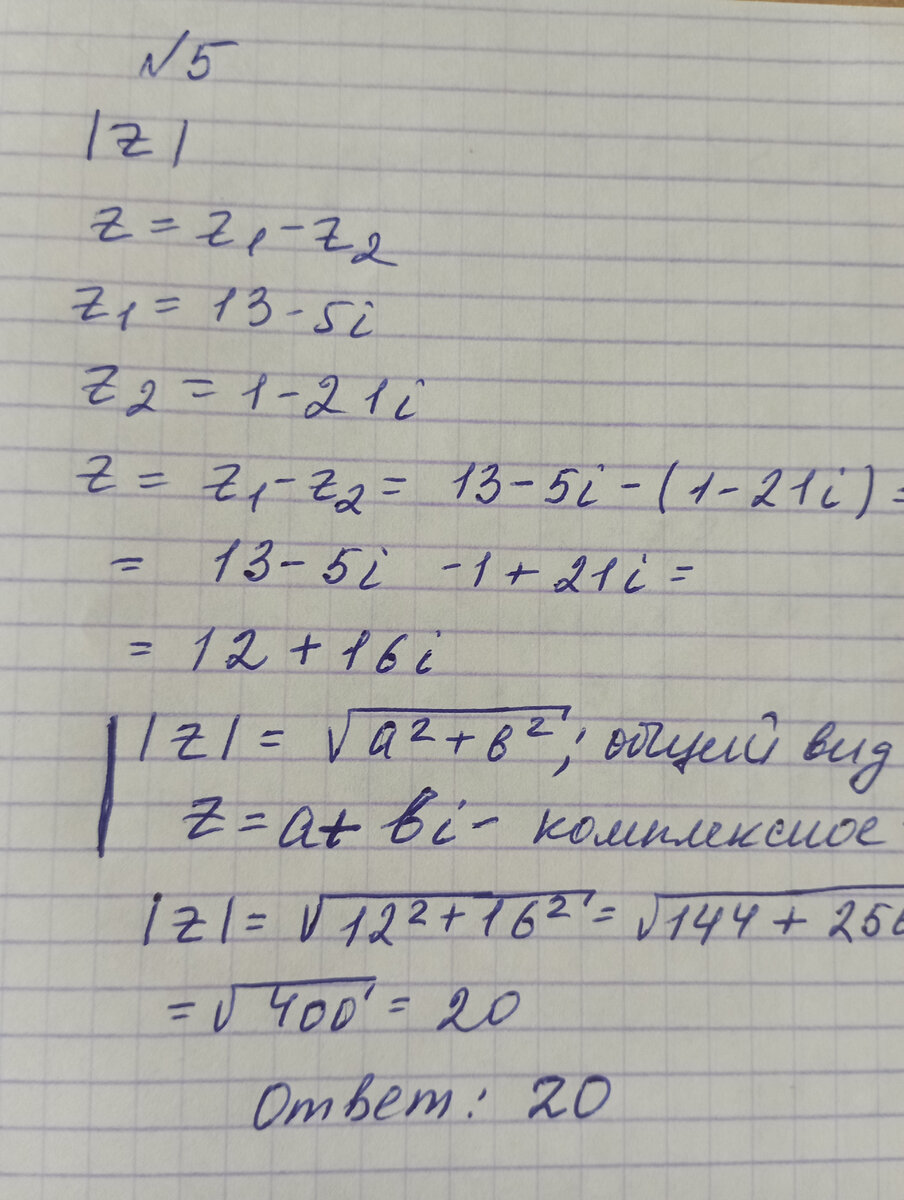 №5
|z|
z = z₁ - z₂
z₁ = 13 - 5i
z₂ = 1 - 21i
z = z₁ - z₂ = 13 - 5i - (1 - 21i) =
= 13 - 5i - 1 + 21i =
= 12 + 16i
|z| = √(a² + в²); общий вид
z = a + вi - комплексное
|z| = √(12² + 16²) = √(144 + 256
= √400 = 20
Ответ: 20